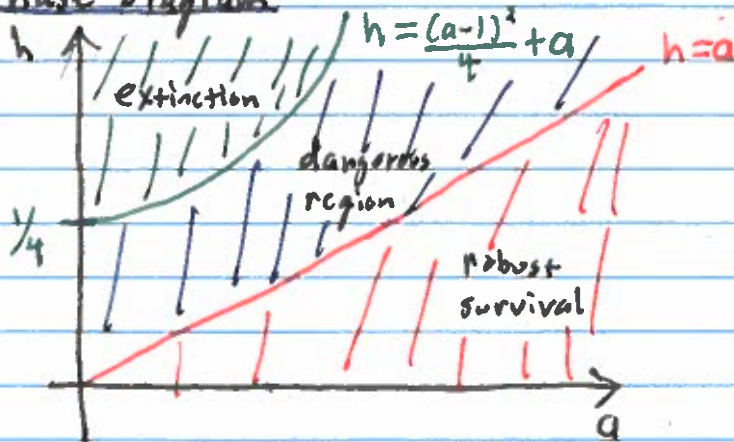 Phase Diagram
h
h = (a-1)²/4 + a
h=a
extinction
dangerous
region
1/4
robust
survival
a